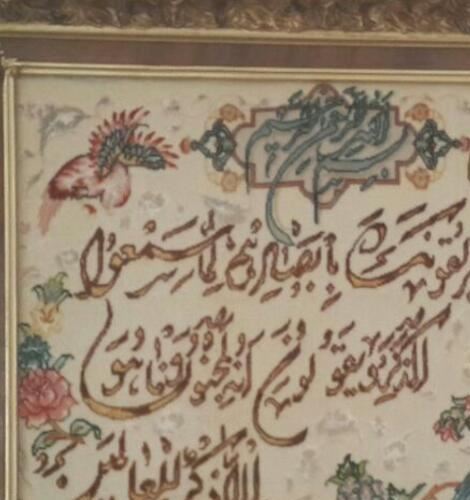 بسم الله الرحمن الرحيم
ليزلقونك بأبصارهم لما سمعوا
الذكر ويقولون إنه لمجنون وما هو
إلا ذكر للعالمين